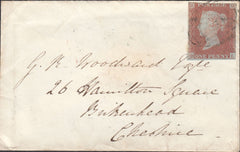 G. R. Woodward Esqre
26 Hamilton Square
Birkenhead
Cheshire